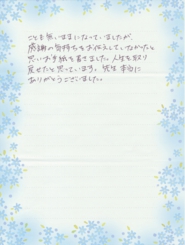 ことを無いままになっていましたが、
感謝の気持ちをお伝えしていなかったと
思いお手紙を書きました。人生を取り
戻せたと思っています。先生 本当に
ありがとうございました。